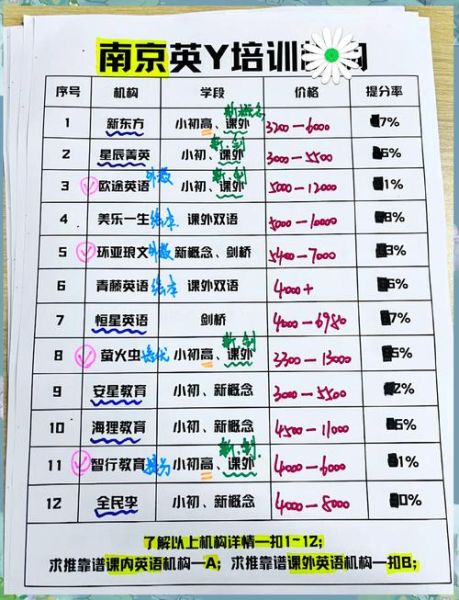 南京英Y培训构
序号 机构 学段 价格 提分率
新概念
1 新东方 小初高、课外 3200-6000 7%
新.剑
2 星辰菁英 小初、课外 3000-5500 6%
新.剑
3 欧途英语 外教 小初、课外 5000-12000 1%
4 美乐一生 绘本 课外双语 5000-10000 8%
5 环亚琅文 外教 新概念、剑桥 5400-7000 3%
6 青藤英语 绘本 课外双语 4000+ 6%
7 恒星英语 剑桥 4000-6980 7%
新.剑
8 萤火虫 培优 小初高、课外 3300-13000 5%
9 安星教育 小初、新概念 3000-5500 2%
10 海狸教育 小初、新概念 4500-11000 6%
新.剑
11 智行教育 提分 小初高、课外 4000-6000 1%
12 全民李 小初、新概念 4000-8000 0%
了解以上机构详情一扣1-12;
求推靠谱课内英语机构一A; 求推靠谱课外英语机构一扣B;